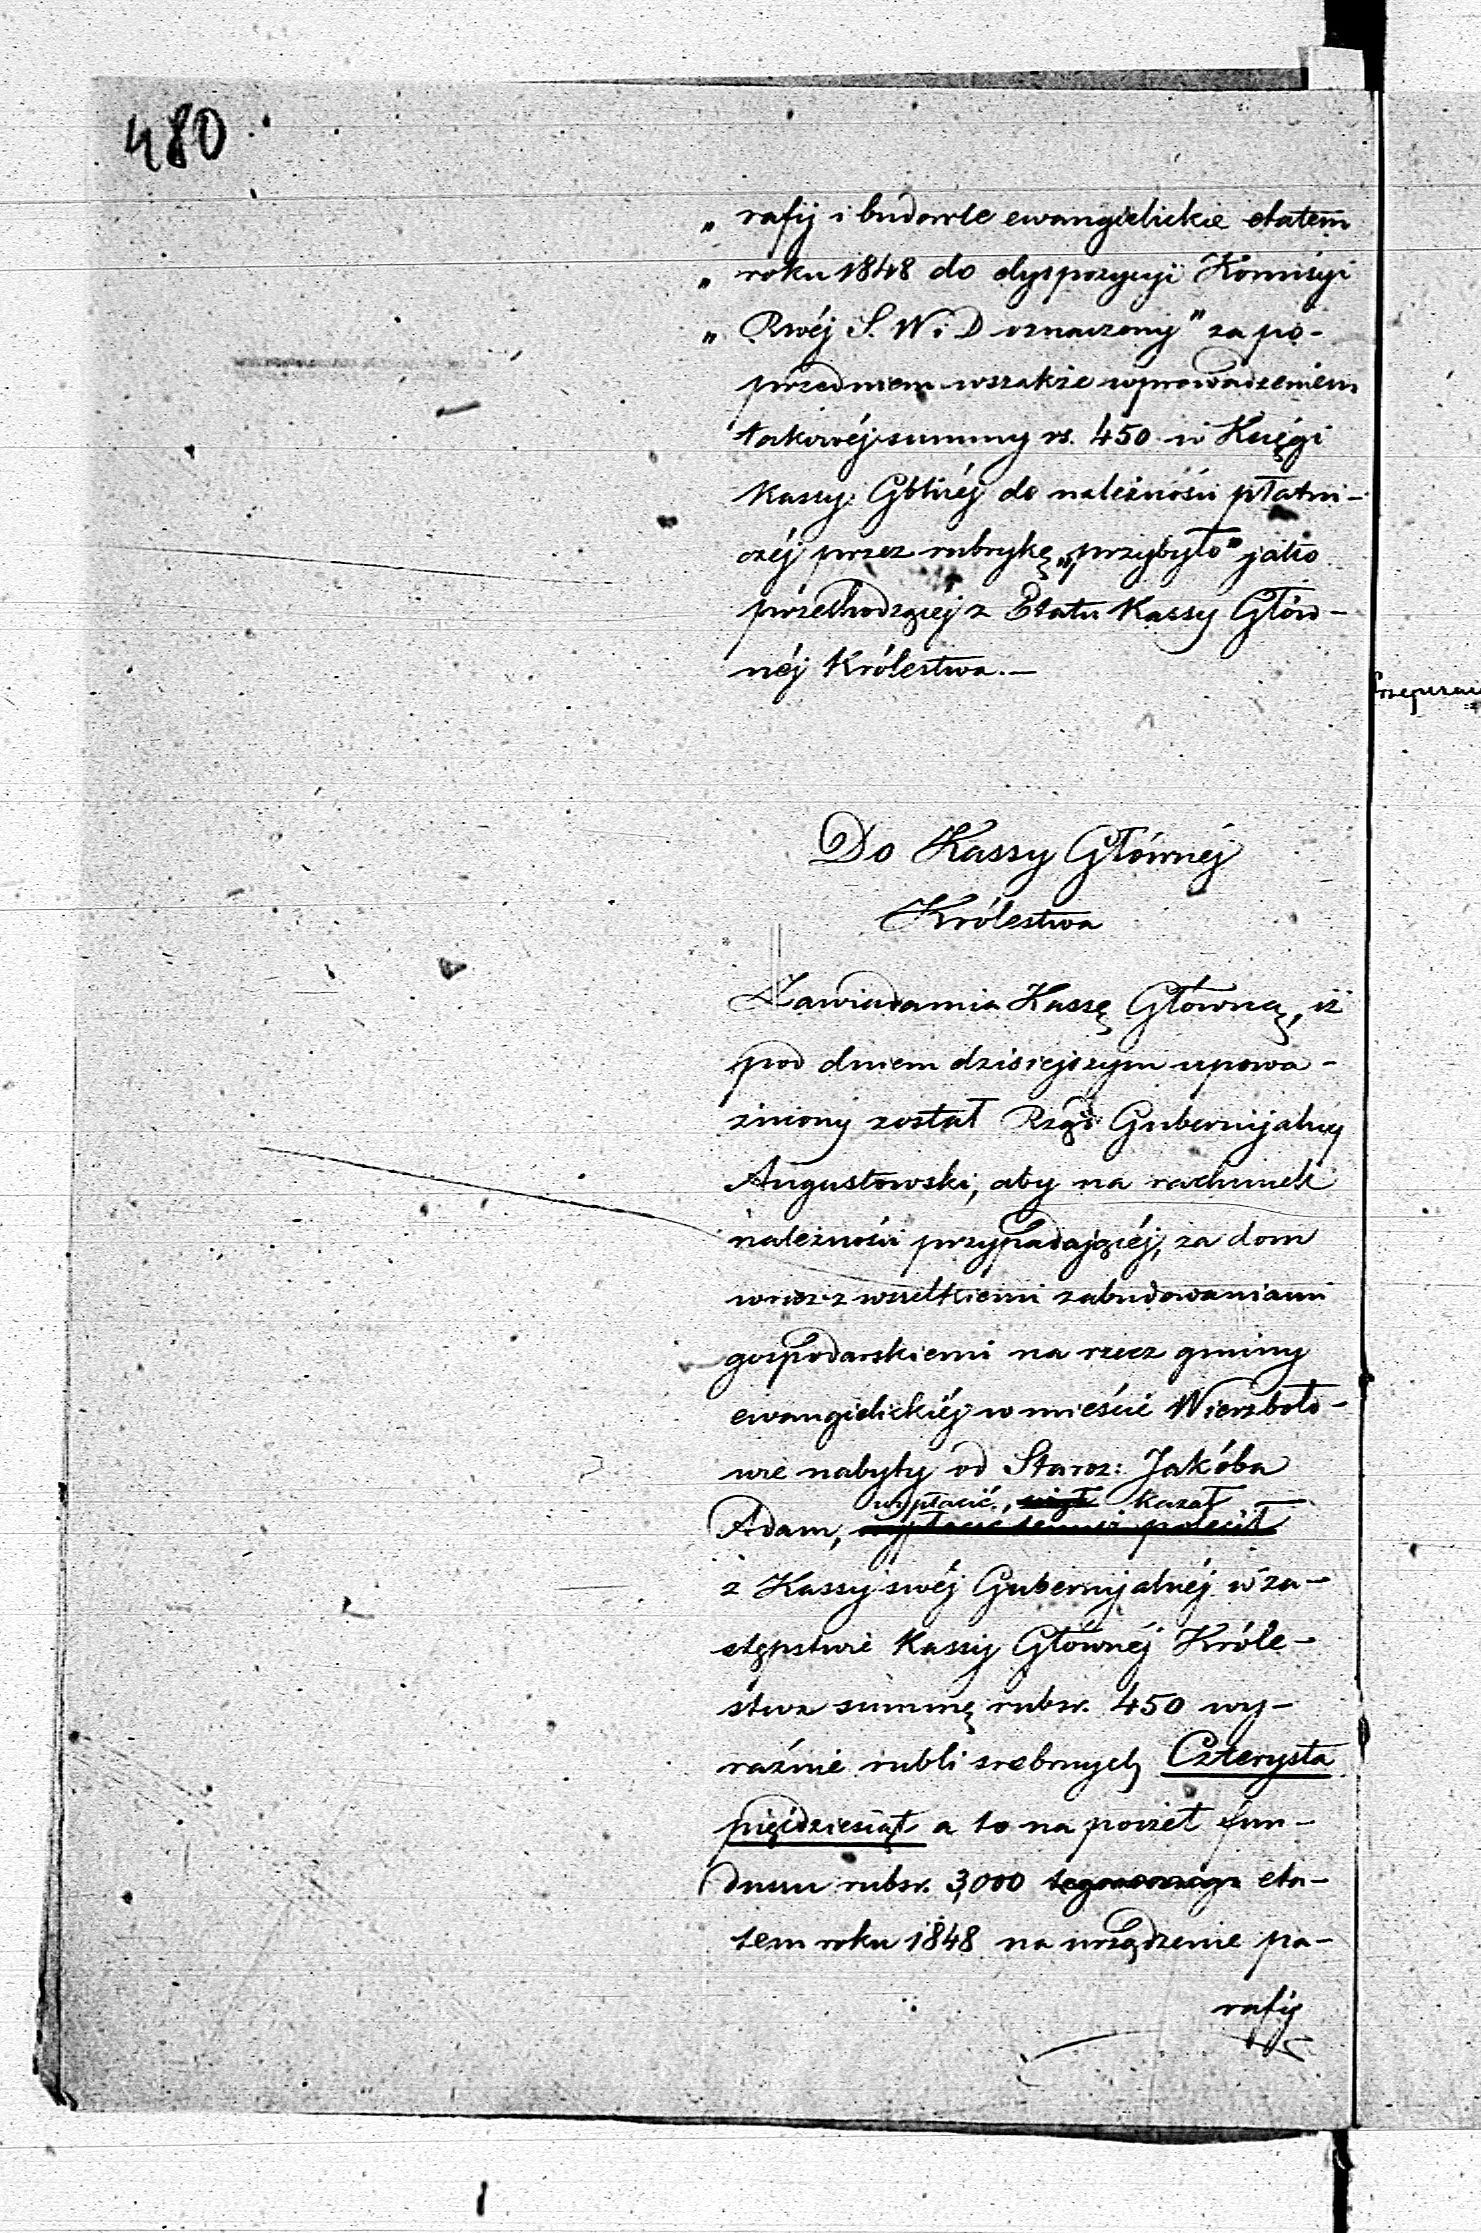 480
„ rafij i budowle ewangielickie etatem
„ roku 1848 do dyspozycyi Kommisyi
„ Rwéj S. W i D oznaczony" za po-
przedniem wszakże wprowadzeniem
takowéj summy rs. 450 w Księgi
Kassy Głównéj do należności płatni-
czéj przez rubrykę „przybyło" jako
przechodzącéj z Etatu Kassy Głów-
néj Królestwa.—
Do Kassy Głównéj
Królestwa
Zawiadamia Kassę Główną, iż
pod dniem dzisiejszym upowa-
żniony został Rząd Gubernijalny
Augustowski, aby na rachunek
należności przypadającéj, za dom
wraz z wszelkiemi zabudowaniami
gospodarskiemi na rzecz gminy
ewangielickiéj w mieście Wierzboło-
wie nabyty od Staroz: Jakóba
wypłacić, kazał
Adam, wypłacić temuż polecił
z Kassy swéj Gubernijalnéj w za-
stępstwie Kassy Głównéj Króle-
stwa summę rubsr. 450 wy-
raźnie rubli srebrnych Czterysta
pięćdziesiąt a to na poczet fun-
duszu rubsr. 3,000 eta-
tem roku 1848 na urządzenie pa-
rafij